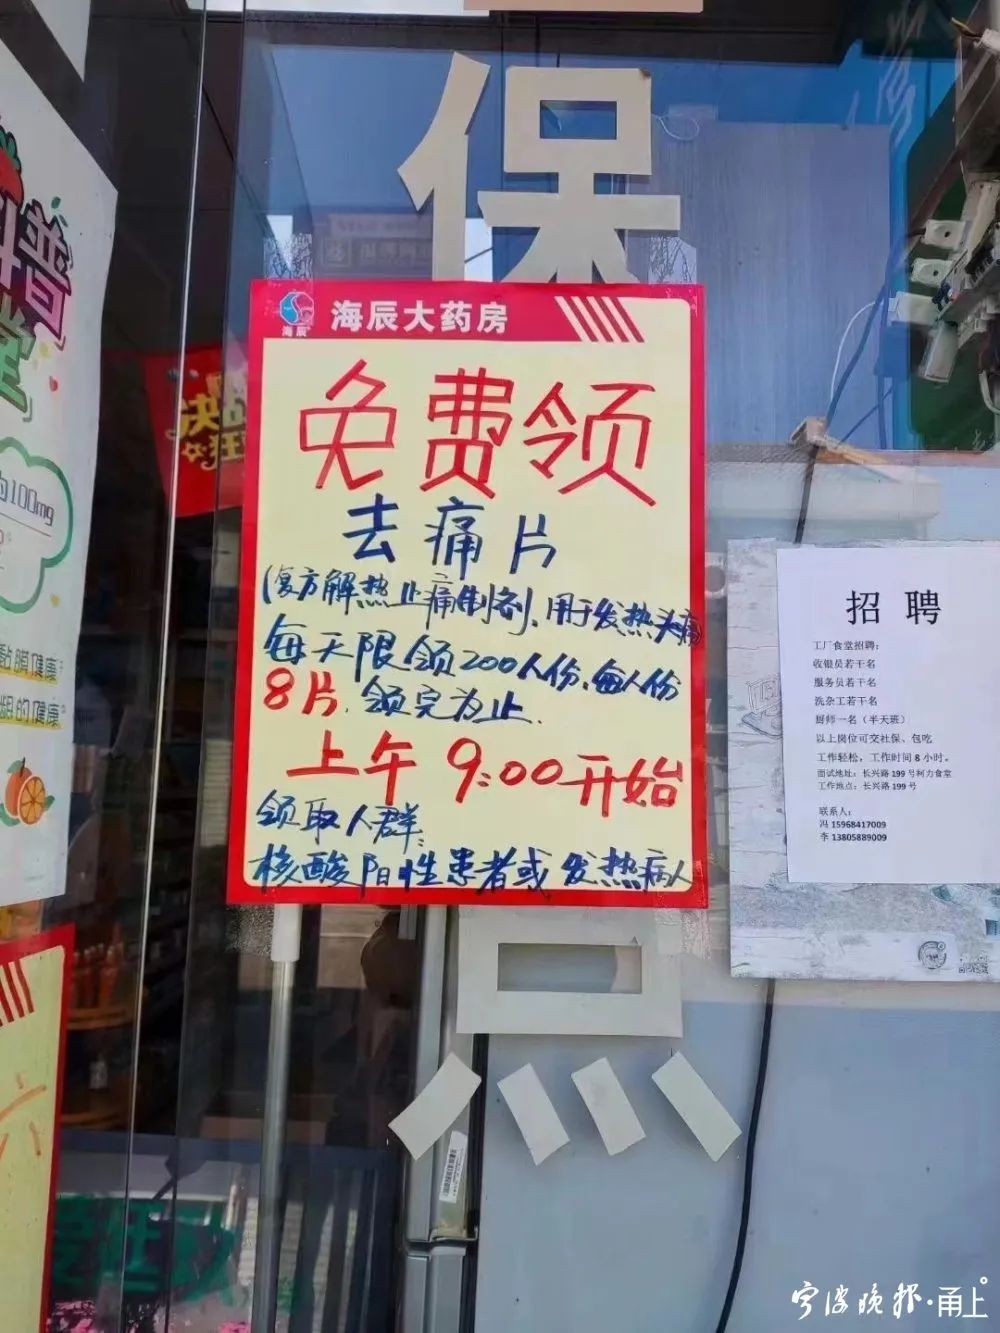 保
海辰
海辰大药房
免费领
去痛片
(复方解热止痛制剂、用于发热头痛)
每天限领200人份、每人份
8片.领完为止.
上午9:00开始
领取人群:
核酸阳性患者或发热病人
点
普
堂
100mg
黏膜健康
腿的健康
决战
狂
六
招 聘
工厂食堂招聘：
收银员若干名
服务员若干名
洗杂工若干名
厨师一名（半天班）
以上岗位可交社保、包吃
工作轻松，工作时间 8 小时。
面试地址：长兴路 199 号柯力食堂
工作地点：长兴路 199 号
联系人：
冯 15968417009
李 13805889009
宁波晚报·甬上